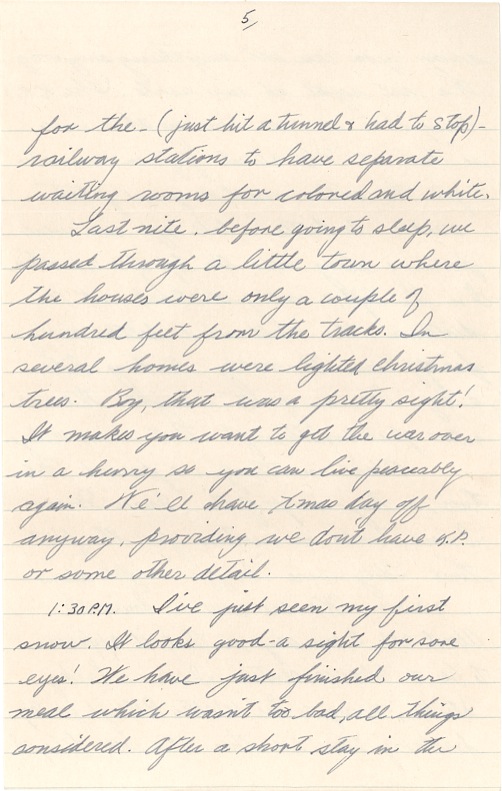 5,
for the - (just hit a tunnel & had to stop) -
railway stations to have separate
waiting rooms for colored and white.
Last nite, before going to sleep, we
passed through a little town where
the houses were only a couple of
hundred feet from the tracks. In
several homes were lighted christmas
trees. Boy, that was a pretty sight!
It makes you want to get the war over
in a hurry so you can live peaceably
again. We'll have Xmas day off
anyway, providing we don't have K.P.
or some other detail.
1:30 P.M. I've just seen my first
snow. It looks good - a sight for sore
eyes! We have just finished our
meal which wasn't too bad, all things
considered. After a short stay in the